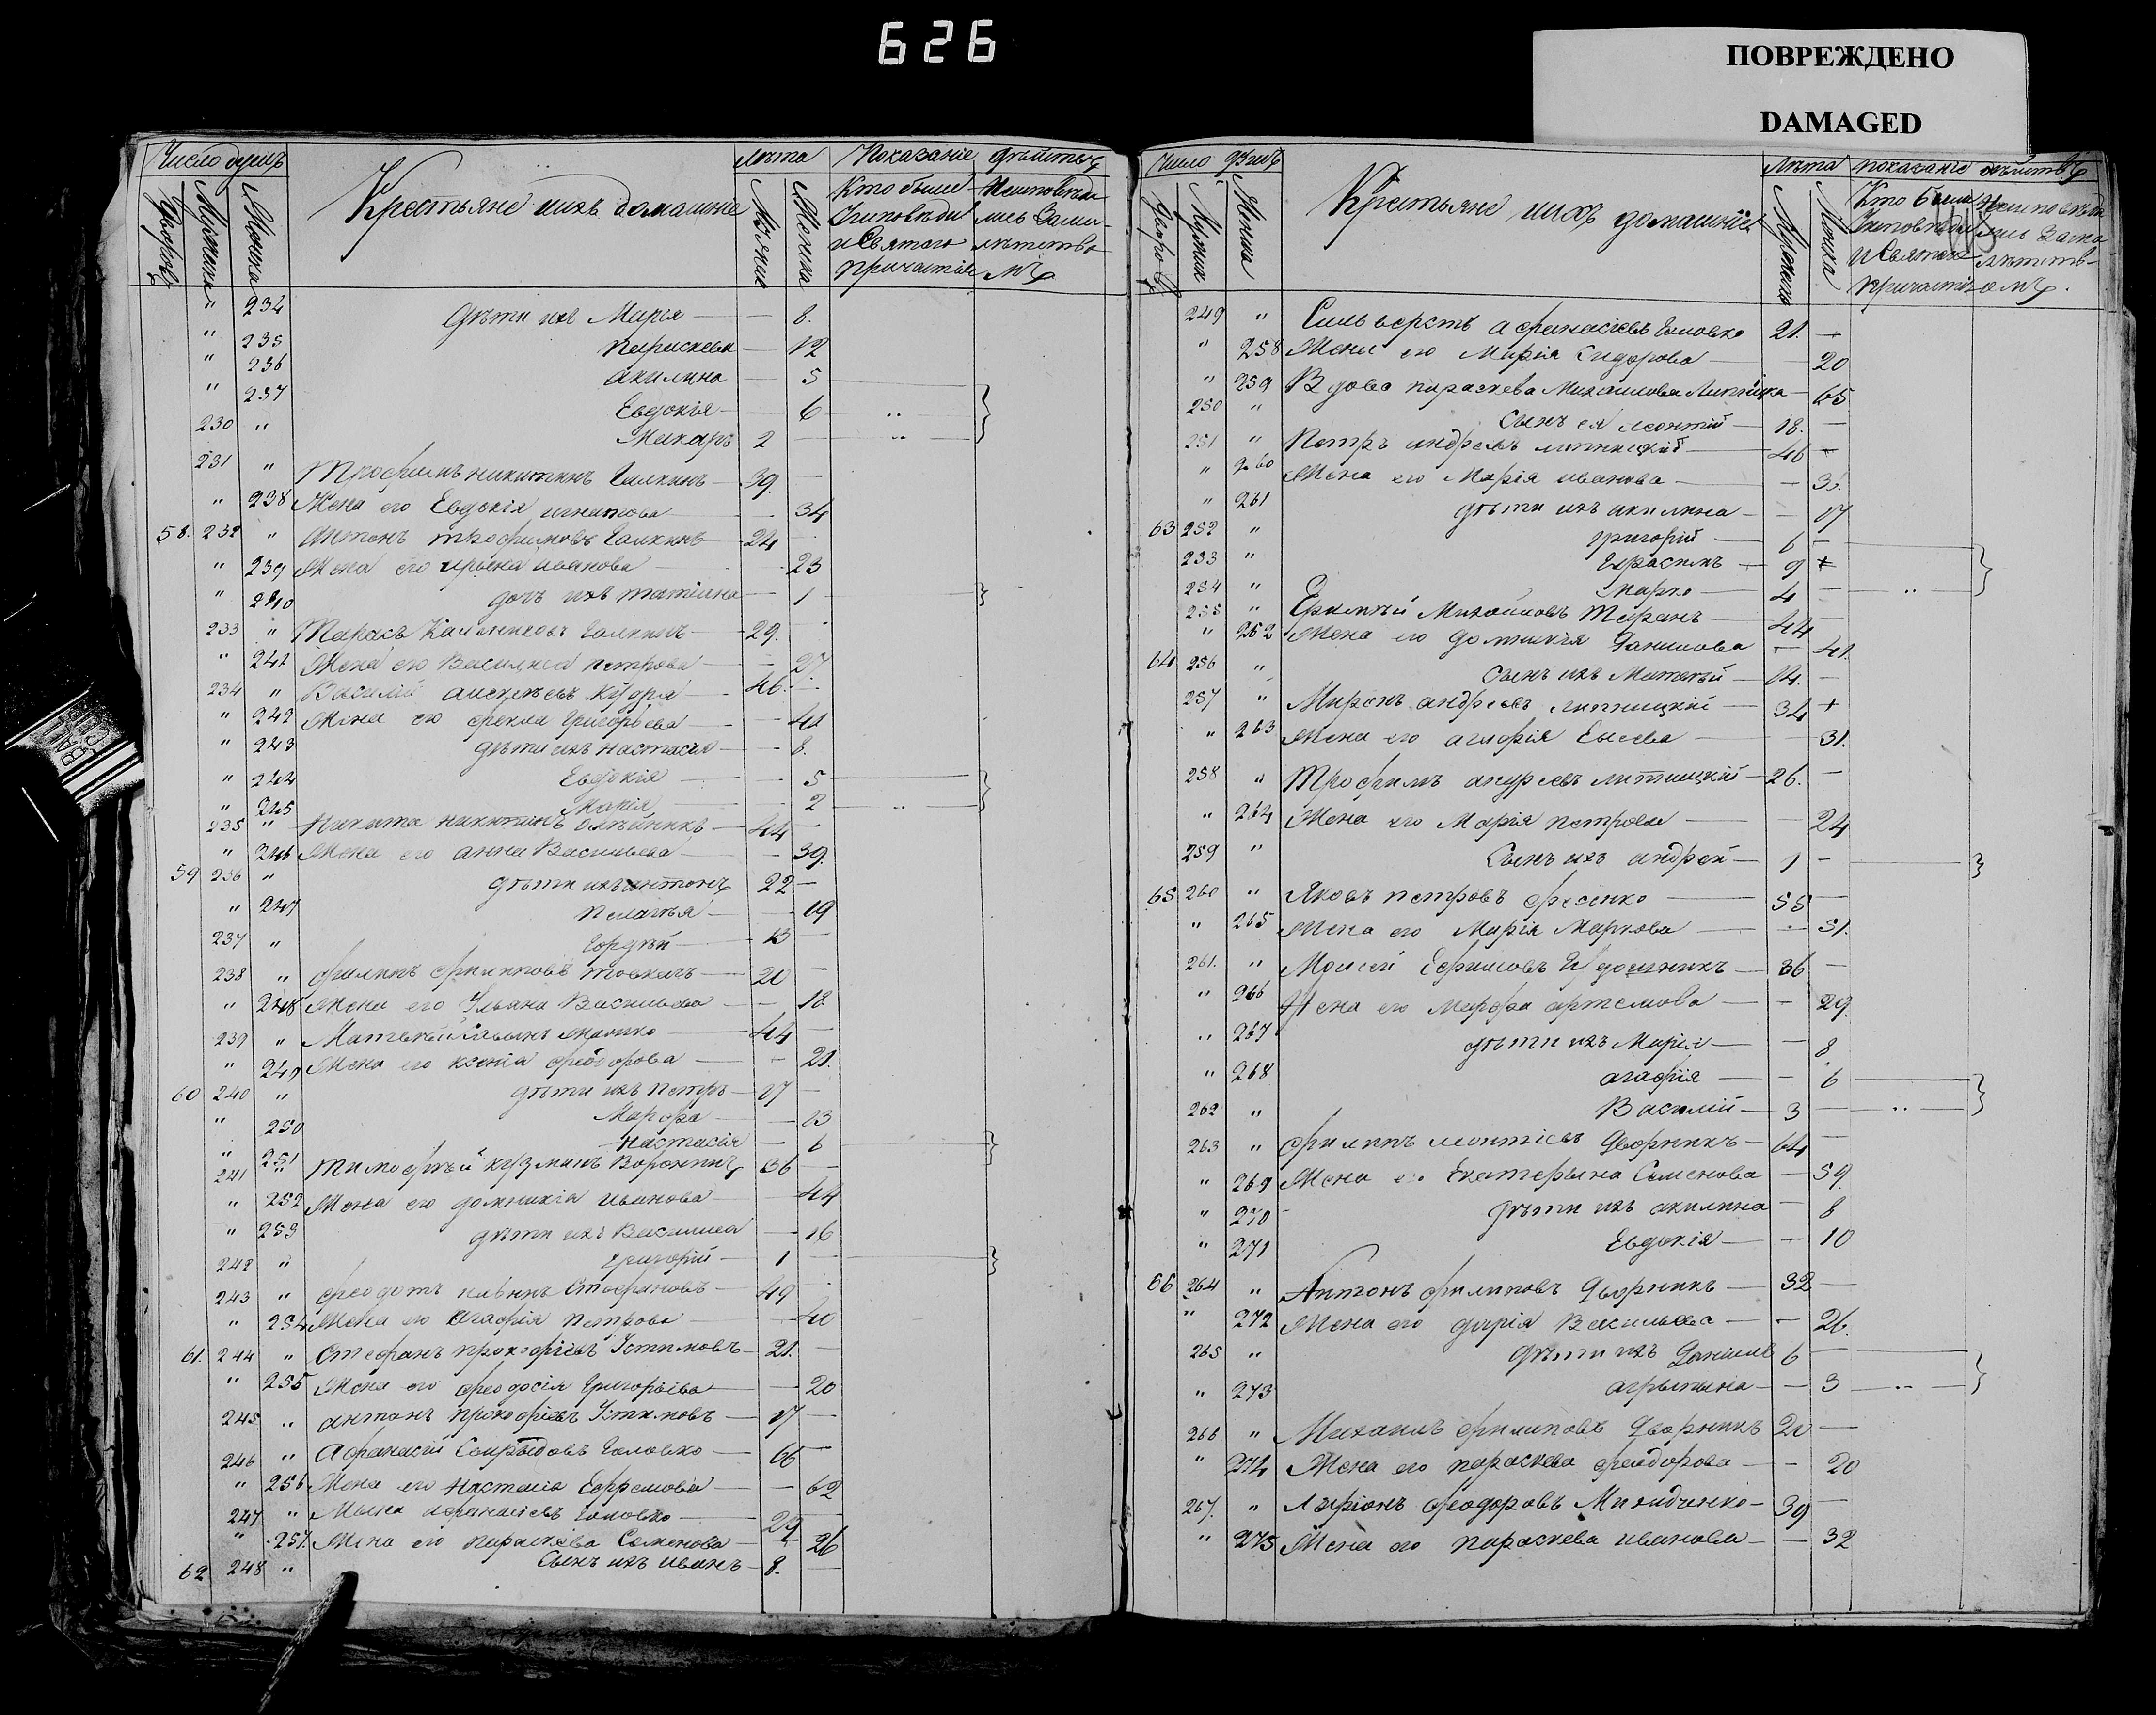 626
ПОВРЕЖДЕНО
DAMAGED
Число душъ
Крестьяне ихъ домашніе
Лѣта
Показаніе дѣйства
Дворовъ
Мужска
Женска
Мужние
Женска
Кто были
Исповѣди
и Святого
Причастія
Неисповѣда
лись За ма
лѣтство
мъ
" 234 Дѣти ихъ Марія — — 8.
" 235 Параскева — 12
" 236 Акилина — 5
" 237 Евдокія — 6
230 " Макаръ 2 —
231 " Трофимъ Никитинъ Галкинъ — 39. —
" 238 Жена его Евдокія Игнатова — 34
58. 232 " Антонъ Трофимовъ Галкинъ — 24 —
" 239 Жена его Ирина Иванова — 23
" 240 дочь ихъ Татіана — 1 —
233 " Тарасъ Галкинъ — 29. —
" 241 Жена его Василиса Петрова — 27
234 " Василій Алексѣевъ — 46. —
" 242 Жена его Фекла Григорьева — 41
" 243 дѣти ихъ Настасія — 8.
" 244 Евдокія — 5
" 245 Марія — 2
235 " Никита Никитинъ Олѣйникъ — 44 —
" 246 Жена его Анна Васильева — 39.
59 236 " дѣти ихъ Антонъ 22 —
" 247 Пелагѣя — 19
237 " Гордѣй — 13 —
238 " Филипъ Филиповъ Товкачъ — 20 —
" 248 Жена его Ульяна Васильева — 18
239 " Матвѣй — 44 —
" 249 Жена его Ксенія Феодорова — 21.
60 240 " дѣти ихъ Петръ — 17 —
" 250 Марфа — 13
" 251 Настасія — 6
241 " Тимофѣй Кузминъ 36 —
" 252 Жена его Домникія Иванова — 44
" 253 дѣти ихъ Василиса — 16
242 " Григорій — 1 —
243 " Феодотъ Стефановъ — 49 —
" 254 Жена его Агафія Петрова — 40
61. 244 " Стефанъ Прокофіевъ Устимовъ — 21. —
" 255 Жена его Феодосія Григоріева — 20
245. " Антонъ Прокофіевъ Устимовъ — 17 —
246 " Афанасій Спиридовъ Головко — 66 —
" 256 Жена его Настасіа Ефремова — 62
247 " Афанасіевъ Головко — 29 —
" 257. Жена его Параскева Семенова — 26
62 248 " Сынъ ихъ Иванъ — 8. —
Число душъ
Крестьяне ихъ домашніе
Лѣта
показаніе дѣйства
Дворовъ
Мужска
Женска
Мужска
Женска
Кто были
Исповѣди
и Святого
Причастія
Неисповѣда
лись За ма
лѣтств
омъ.
249 " Сильверстъ Афанасіевъ Головко 21. —
" 258 Жена его Марія Сидорова — 20
" 259 Вдова Параскева Михаилова — 65
250 " Сынъ ея Леонтій — 18. —
251 " Петръ Андреевъ Липницкій — 46 —
" 260 Жена его Марія Иванова —
" 261 дѣти ихъ Акилина — 17
63 252 " Григорій — 6 —
253 " Герасимъ — 9 —
254 " Марко — 4 —
255 " Михайловъ Таранъ — 44
" 262 Жена его Домникія Данилова — 41.
64 256 " Сынъ ихъ Матвѣй — 14. —
257 " Миронъ Андреевъ Липницкій — 34 —
" 263 Жена его Агафія — 31.
258 " Трофимъ Андреевъ Липницкій — 26. —
" 264 Жена его Марія Петрова — 24
259 " Сынъ ихъ Андрей — 1 —
65 260 " Яковъ Петровъ Фесенко — 55 —
" 265 Жена его Марія Маркова — 51.
261. " Моисей Ефимовъ — 36 —
" 266 Жена его Марфа Артемова — 29.
" 267 дѣти ихъ Марія — 8
" 268 Агафія — 6
262 " Василій — 3 —
263 " Филипъ Леонтіевъ Дворникъ — 64 —
" 269 Жена его Екатерына Семенова — 59.
" 270 дѣти ихъ Акилина — 8
" 271 Евдокія — 10
66 264 " Антонъ Филиповъ Дворникъ — 32 —
" 272 Жена его Дарія Васильева — 26.
265 " дѣти ихъ Даніилъ 6 —
" 273 Агрыпына — 3
266 " Михаилъ Филиповъ Дворникъ 20 —
" 274 Жена его Параскева Феодорова — 20
267. " Ларіонъ Феодоровъ — 39 —
" 275 Жена его Параскева Иванова — 32